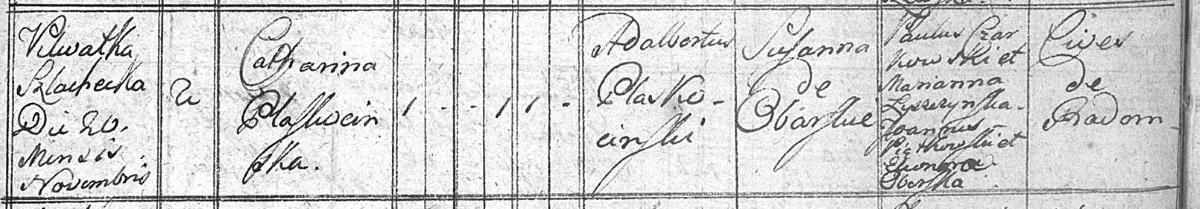 Wulwatka
Szlachecka
Die 20.
Mensis
Novembris
Catharina
Plaskocin
ska.
1 - - 1 1 -
Adalbertus
Plasko-
cinski
Susanna
de
Obarskie
Paulus Czar
kowski et
Marianna
Joannus
Pietkowski et
Eleonora
Oberska
Cives
de
Radom